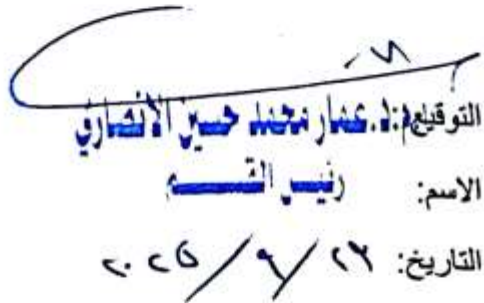 التوقيع: م.د. عمار محمد حسين الانصاري
الاسم: رئيس القسم
التاريخ: ٢٠٢٥/٩/٢٣